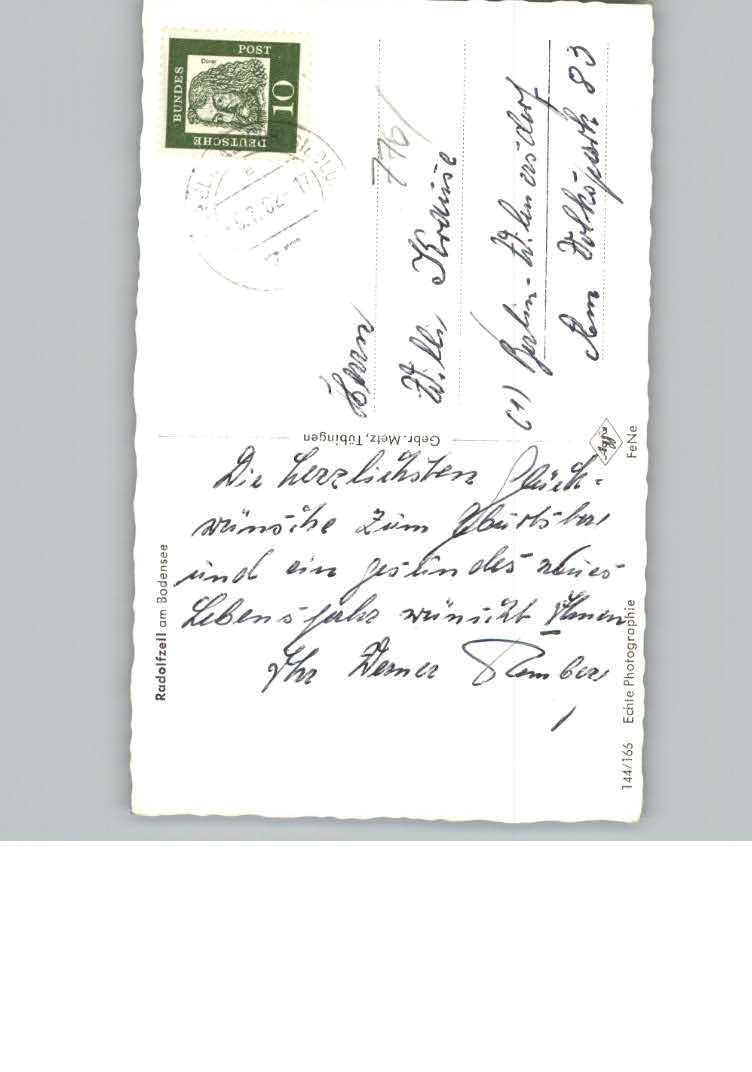 Die herzlichsten Glück-
wünsche zum Geburtstag
und ein gesundes neues
Lebensjahr wünscht Ihnen
Ihr Werner
Herrn
Willi Krause
(1) Berlin-Wilmersdorf
Am Volkspark 83
776/
DEUTSCHE
BUNDES
POST
10
Dürer
Gebr. Metz, Tübingen
Radolfzell am Bodensee
144/166 Echte Photographie FeNe